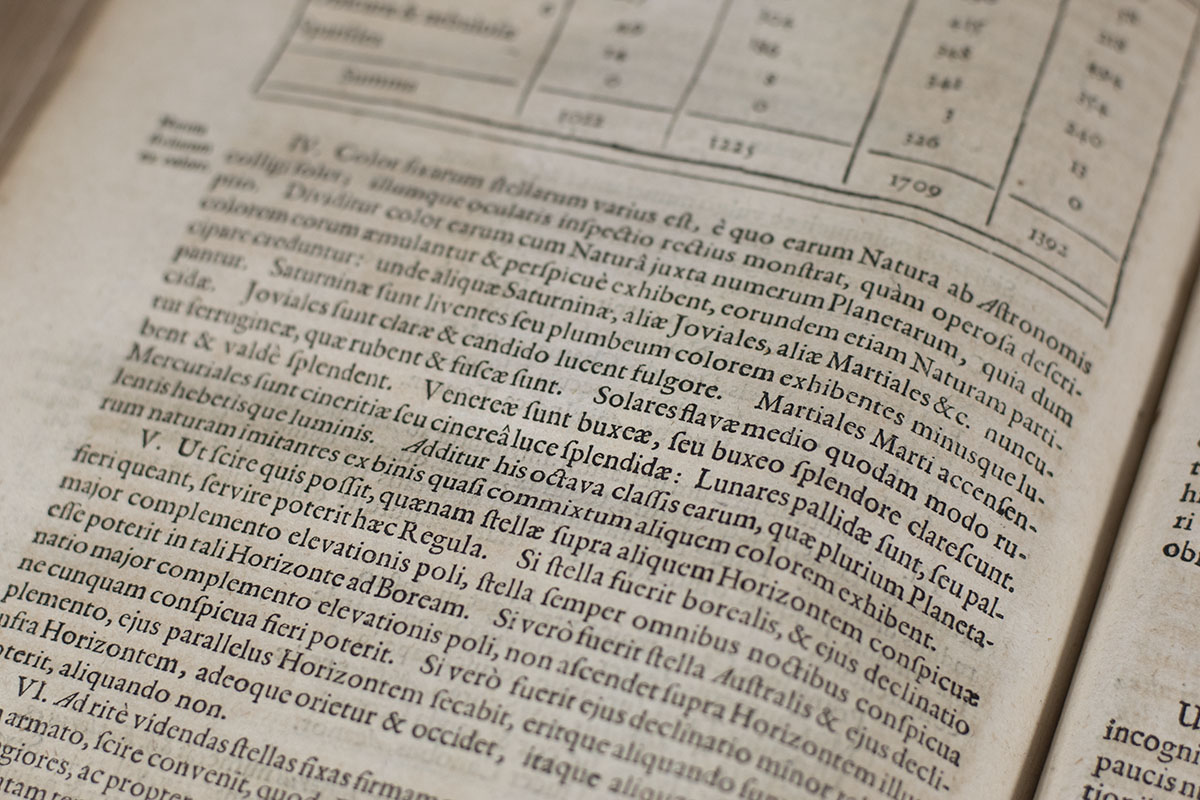 Summa
1022 1225 1709 1392
IV. Color fixarum ſtellarum varius eſt, è quo earum Natura ab Aſtronomis
colligi ſolet; illumque ocularis inſpectio rectius monſtrat, quàm operoſa deſcri-
ptio. Dividitur color earum cum Naturâ juxta numerum Planetarum, quia dum
colorem eorum æmulantur & perſpicuè exhibent, eorundem etiam Naturam parti-
cipare creduntur: unde aliquæ Saturninæ, aliæ Joviales, aliæ Martiales &c. nuncu-
pantur. Saturninæ ſunt liventes ſeu plumbeum colorem exhibentes minusque lu-
cidæ. Joviales ſunt claræ & candido lucent fulgore. Martiales Marti accenſen-
tur ferrugineæ, quæ rubent & fuſcæ ſunt. Solares flavæ medio quodam modo ru-
bent & valdè ſplendent. Venereæ ſunt buxeæ, ſeu buxeo ſplendore clareſcunt.
Mercuriales ſunt cineritiæ ſeu cinereâ luce ſplendidæ: Lunares pallidæ ſunt, ſeu pal-
lentis hebetisque luminis. Additur his octava claſſis earum, quæ plurium Planeta-
rum naturam imitantes ex binis quaſi commixtum aliquem colorem exhibent.
V. Ut ſcire quis poſſit, quænam ſtellæ ſupra aliquem Horizontem conſpicuæ
fieri queant, ſervire poterit hæc Regula. Si ſtella fuerit borealis, & ejus declinatio
major complemento elevationis poli, ſtella ſemper omnibus noctibus conſpicua
eſſe poterit in tali Horizonte ad Boream. Si verò fuerit ſtella Auſtralis & ejus decli-
natio major complemento elevationis poli, non aſcendet ſupra Horizontem
ne cunquam conſpicua fieri poterit. Si verò fuerit ejus declinatio minor
plemento, ejus parallelus Horizontem ſecabit, eritque aliquando
nfra Horizontem, adeoque orietur & occidet, itaque
oterit, aliquando non.
VI. Ad ritè videndas ſtellas fixas
armato, ſcire convenit,
giores, ac
incogni
paucis